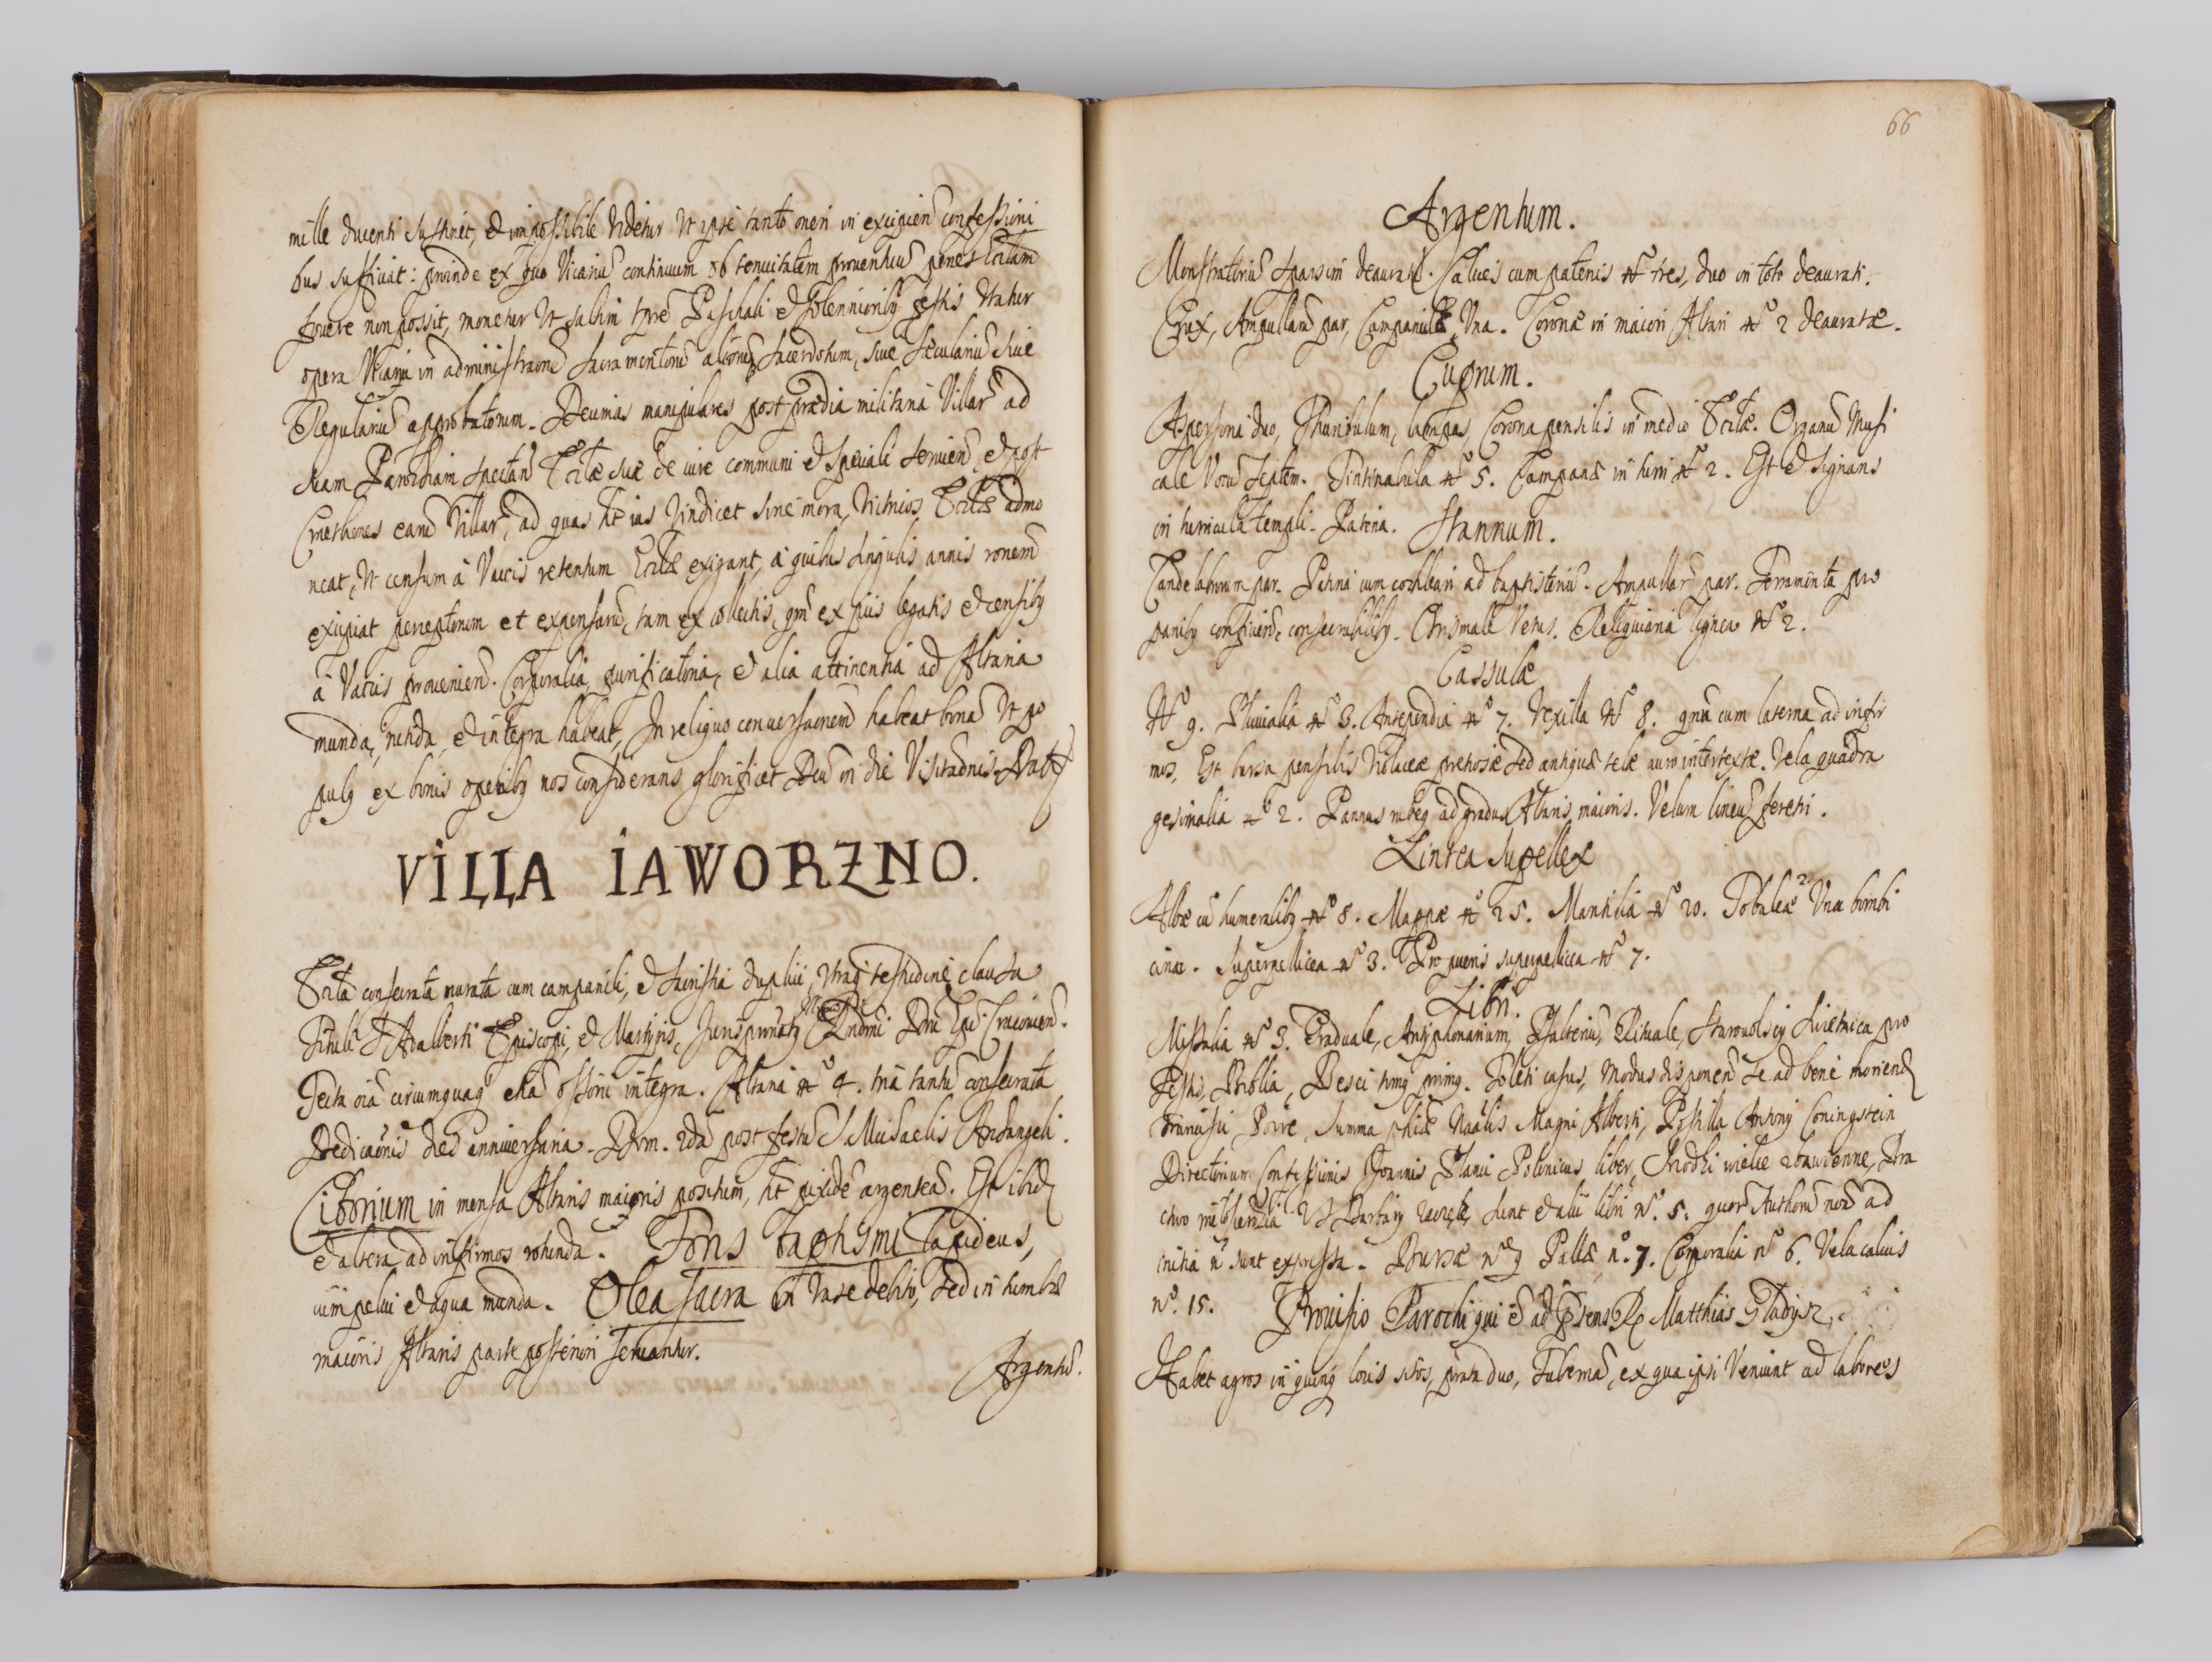 mille ducenti sustinet, et impossibile videtur ut ipse tanto oneri in excipiend confessioni
bus sufficiat: proinde ex quo Vicariū continuum ob tenuitatem proventuū penes Eccłam
fovere non possit, monetur ut saltim tpre Paschali et solennioribq festis utatur
opera in administraone sacramentorū aliorū sacerdotum, sive secularium sive
Regulariū approbatorum. Decimas manipulares post prædia militaria Villarū ad
suam Parochiam spectan̄ Eccłæ suæ de iure communi et speciali servien̄ et post
Cmethones earū Villarū, ad quas ht ius vindicet sine mora, Vitricos Eccłæ admo
neat, ut censum à Vaccis retentum Eccłæ exigant, à quibus singulis annis ronem
excipiat perceptorum et expensarū, tam ex collectis, qm ex piis legatis et censibq
à Vaccis provenien̄. Corporalia, purificatoria, et alia attinentia ad Altaria
munda, nitida, et integra habeat, In reliquo conversaonem habeat bonā ut po
pulq ex bonis operibq nos considerans glorificet Deū in die Visitaōnis. Datq
VILLA IAWORZNO.
Eccła consecrata murata cum campanili, et sacristia duplici, utraq testudine clausa
Tituli S Adalberti Episcopi, et Martyris, Jurispatronatq Rndmi Dni Epi Cracovien̄.
Tecta oīa circumquaq etiā ossorii integra. Altaria No 4. tria tantū consecrata
Dedicaōnis dies anniversaria Dom. 2da post festū S Michaelis Archangeli.
Ciborium in mensa Altaris maioris positum, ht pixidē argenteā. Est ibid
et altera ad infirmos rotunda. Fons baptismi lapideus,
cum pelvi et aqua munda. Olea sacra in vase debito, sed in tumbæ
maioris Altaris parte posteriori servantur.
Argentū.
66
Argentum.
Monstratoriū sparsim deauratū. Calices cum patenis No tres, duo in toto deaurati.
Crux, Ampullarū par, Campanula Una. Coronæ in maiori Altari No 2 deauratæ.
Cuprum.
Aspersoria duo, Thuribulum, lampas, Corona pensilis in medio Eccłæ. Organū Musi
cale Vocū septem. Tintinabula No 5. Campanæ in turri No 2. Est et signans
in turricula templi. Patina. Stannum.
Candelabrorum par. Patina cum cochleari ad baptisteriū. Ampullarū par. Ferramenta pro
panibq conficiend consecrabilibq. Chrismale Vetus. Reliquiaria lignea No 2.
Cassulæ
No 9. Pluvialia No 3. Antependia No 7. Vexilla No 8. qntū cum laterna ad infir
mos, Est bursa pensilis violaceæ pretiosæ sed antiquæ telæ auro intertextæ. Vela quadra
gesimalia No 2. Pannus rubeq ad gradus Altaris maioris. Velum lineū feretri.
Lintea supellex
Albæ cū humeralibq No 8. Mappæ No 25. Mantilia No 20. Tobaleæ 2 Una bombi
cinæ. Superpellicea No 3. Pro pueris superpellicea No 7.
Libri.
Missalia No 3. Graduale, Antiphonarium, Psalteriū, Rituale, Starowolscy Swietnica pro
Festis, Biblia, Besei tomq primq. Toleti casus, Modus disponend se ad bene moriend
Francisci Poire, Summa phiæ Naālis Magni Alberti, Postilla Antonij Coningstein
Directorium Confessionis Joannis Polanci Polonicus liber, Modli wielce zbawienne, Bra
ctwo miłosierdzia U S Barbary, sunt et alii libri No. 5. quorū Authorū noīa ad
initia n sunt expressa. Bursæ No 9 Pallæ, No. 7. Corporalia No 6. Vela calicis
No. 15. Provisio Parochi qui ē ad psens R. Matthias Gładysz.
Habet agros in quinq locis sitos, prata duo, Tabernā, ex qua ipsi veniunt ad labores